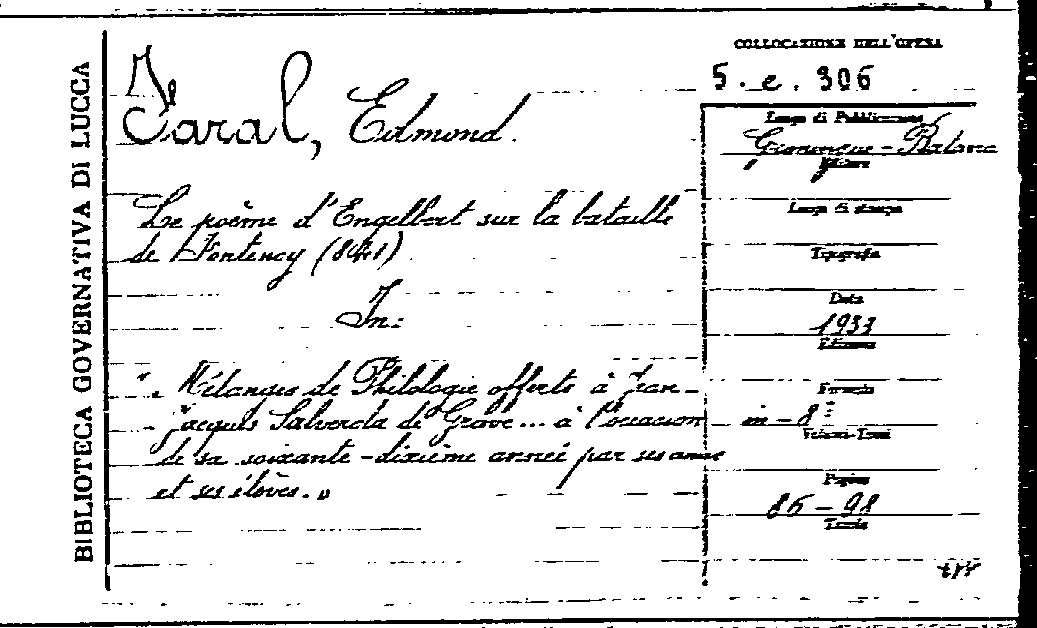 BIBLIOTECA GOVERNATIVA DI LUCCA
COLLOCAZIONE DELL'OPERA
5. e. 306
Faral, Edmond.
Luogo di Pubblicazione
Groningue - Batavia
Editore
Le poème d'Engelbert sur la bataille
de Fontenoy (841)
Luogo di stampa
Tipografia
In:
Data
1933
Edizione
". Mélanges de Philologie offerts à Jean-
Jacques Salverda de Grave... à l'occasion
de sa soixante-dixième année par ses amis
et ses élèves. "
Formato
in-8°
Volumi-Tomi
Pagine
86-98
Tavole